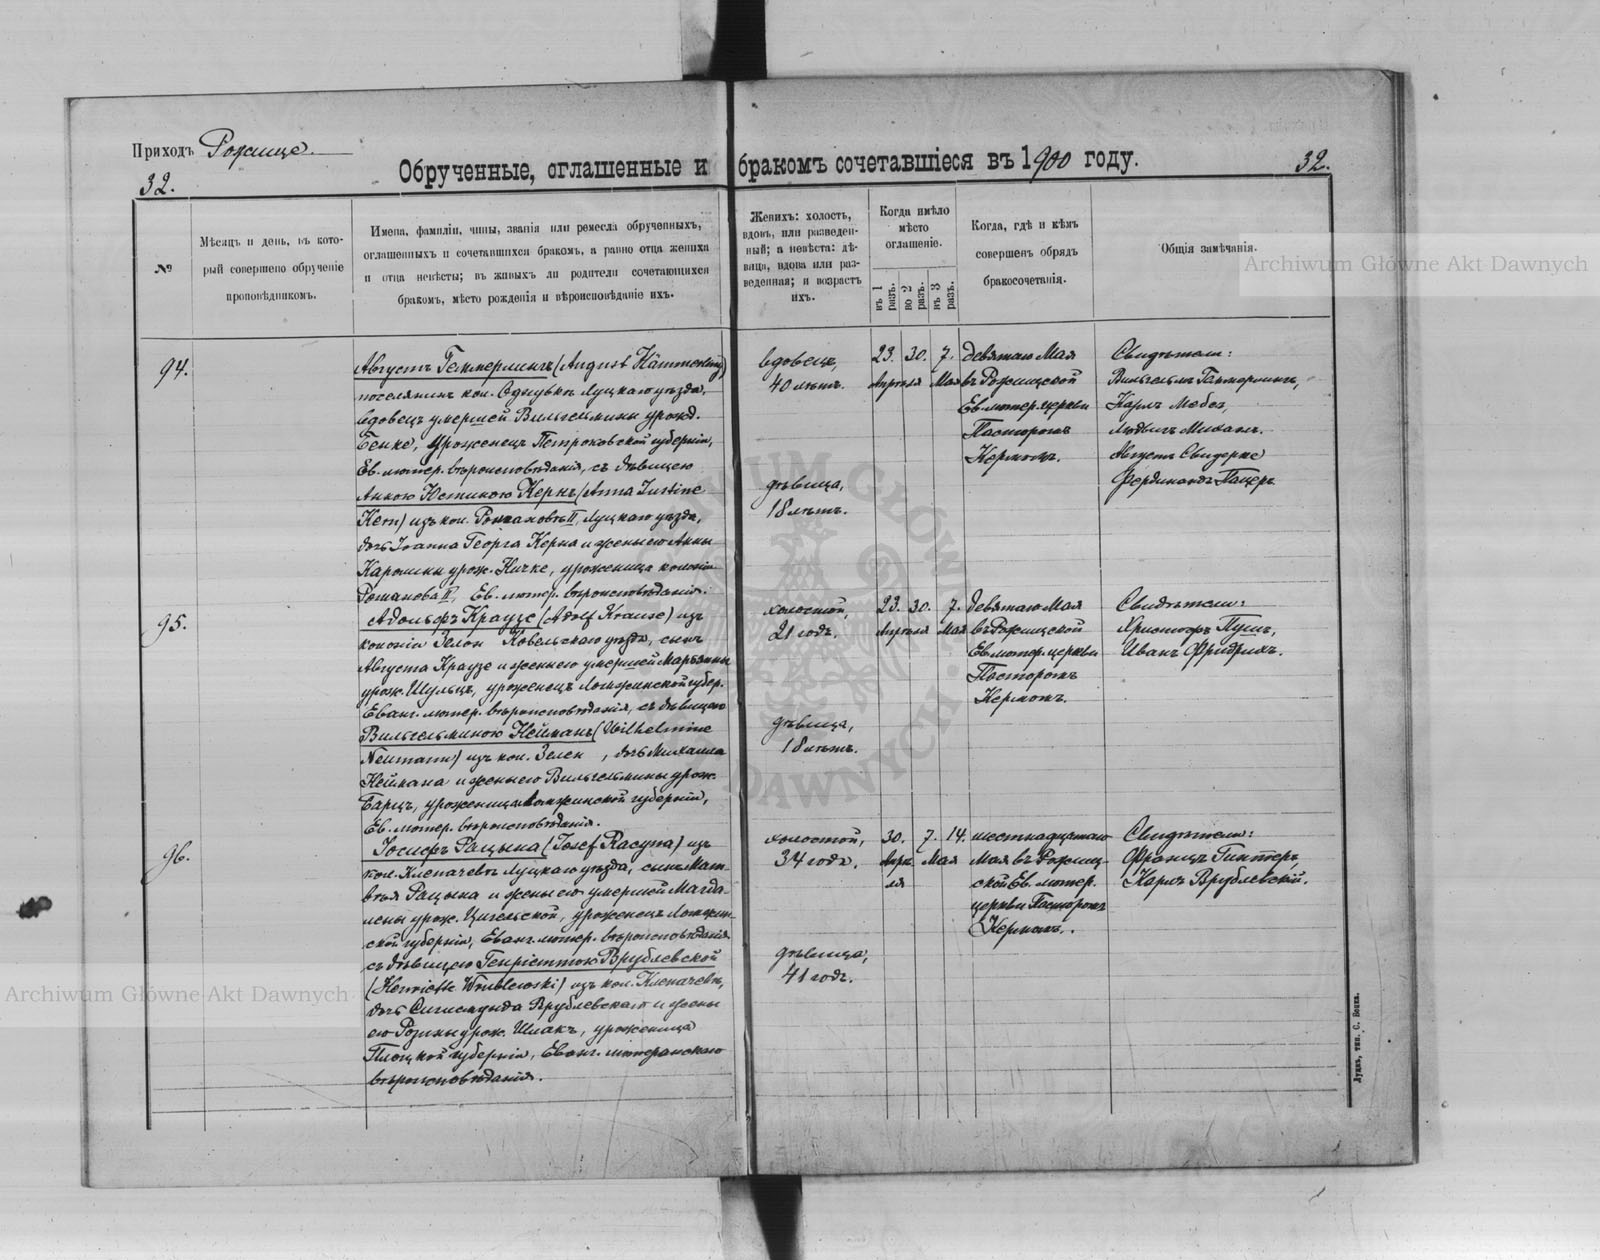 Приходъ Рожище.
32.
Обрученные, оглашенные и бракомъ сочетавшіеся въ 1900 году.
32.
№
Мѣсяцъ и день, въ кото-
рый совершено обрученіе
проповѣдникомъ.
Имена, фамиліи, чины, званія или ремесла обрученныхъ,
оглашенныхъ и сочетавшихся бракомъ, а равно отца жениха
и отца невѣсты; въ живыхъ ли родители сочетающихся
бракомъ, мѣсто рожденія и вѣроисповѣданіе ихъ.
Женихъ: холостъ,
вдовъ, или разведен-
ный; а невѣста: дѣ-
вица, вдова или раз-
веденная; и возрастъ
ихъ.
Когда имѣло
мѣсто
оглашеніе.
въ 1 разъ.
во 2 разъ.
въ 3 разъ.
Когда, гдѣ и кѣмъ
совершенъ обрядъ
бракосочетанія.
Общія замѣчанія.
94.
Августъ Геммерлингъ (August Kämmerling)
поселянинъ кол. Луцкаго уѣзда,
вдовецъ умершей Вильгельмины урожд.
Генке, уроженецъ Петроковской губерніи,
Ев. лютер. вѣроисповѣданія, съ дѣвицею
Анною Юстиною Кернъ (Anna Justine
Kern) изъ кол. Романовъ II, Луцкаго уѣзда,
дочь Іоанна Георга Керна и жены его Анны
Каролины урож. Кичке, уроженица колоніи
Романова II, Ев. лютер. вѣроисповѣданія.
вдовецъ,
40 лѣтъ.
дѣвица,
18 лѣтъ.
23. 30. 7.
Апрѣля Мая
девятаго Мая
въ Рожищской
Ев. лютер. церкви
Пасторомъ
Керномъ.
Свидѣтели:
Вильгельмъ Геммерлингъ,
Карлъ Мебес,
Людвигъ Михам.
Августъ Свидерке
Фердинандъ Пацеръ
95.
Адольфъ Краузе (Adolf Krause) изъ
колоніи Зелон Ковельскаго уѣзда, сынъ
Августа Краузе и жены его умершей Маріанны
урож. Шульцъ, уроженецъ Ломжинской губер.
Еванг. лютер. вѣроисповѣданія, съ дѣвицею
Вильгельминою Нейманъ (Wilhelmine
Neumann) изъ кол. Зелен , дочь Михаила
Неймана и жены его Вильгельмины урож.
Барцъ, уроженица Ломжинской губерніи,
Ев. лютер. вѣроисповѣданія.
холостой,
21 годъ.
дѣвица,
18 лѣтъ.
23. 30. 7.
Апрѣля Мая
девятаго Мая
въ Рожищской
Ев. лютер. церкви
Пасторомъ
Керномъ.
Свидѣтели:
Христофъ Пушъ,
Иванъ Фридрихъ.
96.
Іосифъ Рацына (Josef Racyna) изъ
кол. Клепачевъ Луцкаго уѣзда, сынъ Мат-
вѣя Рацына и жены его умершей Магда-
лены урож. Цигельской, уроженецъ Ломжин-
ской губерніи, Еванг. лютер. вѣроисповѣданія
съ дѣвицею Генріеттою Врублевской
(Henriette Wrublewski) изъ кол. Клепачевъ,
дочь Сигизмунда Врублевскаго и жены
его Розины урож. Шпакъ, уроженица
Плоцкой губерніи, Еванг. лютеранскаго
вѣроисповѣданія.
холостой,
34 года.
дѣвица,
41 годъ.
30. 7. 14.
Апрѣля Мая
шестнадцатаго
Мая въ Рожищ-
ской Ев. лютер.
церкви Пасторомъ
Керномъ.
Свидѣтели:
Францъ Гинтеръ,
Карлъ Врублевскій.
Луцкъ, тип. С. Бонка.
Archiwum Główne Akt Dawnych
Archiwum Główne Akt Dawnych